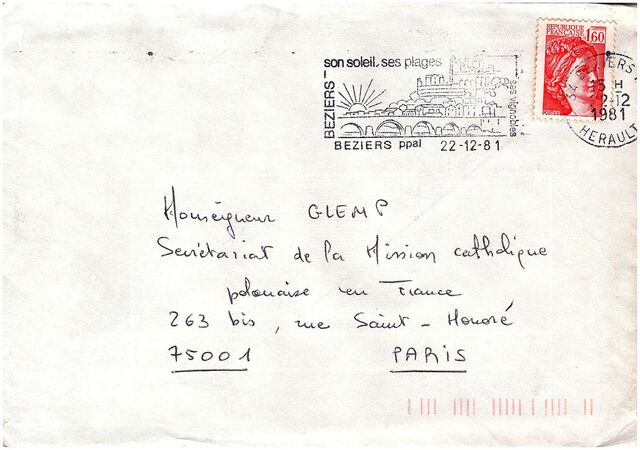 BEZIERS - son soleil, ses plages
ses vignobles
BEZIERS ppal 22-12-81
REPUBLIQUE
FRANÇAISE
1,60
POSTES
BEZIERS
15 H
22-12
1981
HERAULT
Monseigneur GLEMP
Secrétariat de la Mission catholique
polonaise en France
263 bis, rue Saint-Honoré
75001 PARIS